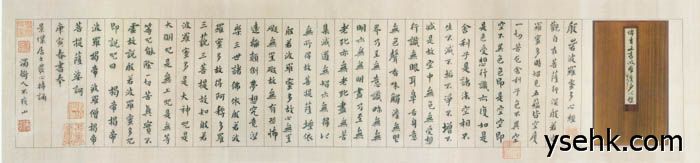 般若波羅蜜多心經
觀自在菩薩行深般若
波羅蜜多時照見五蘊皆空度
一切苦厄舍利子色不異空空
不異色色即是空空即
是色受想行識亦復如是
舍利子是諸法空相不
生不滅不垢不淨不增不
減是故空中無色無受想
行識無眼耳鼻舌身意
無色聲香味觸法無眼
界乃至無意識界無無
明亦無無明盡乃至無
老死亦無老死盡無苦
集滅道無智亦無得以
無所得故菩提薩埵依
般若波羅蜜多故心無罣
礙無罣礙故無有恐怖
遠離顛倒夢想究竟涅
槃三世諸佛依般若波
羅蜜多故得阿耨多羅
三藐三菩提故知般若
波羅蜜多是大神咒是
大明咒是無上咒是無
等等咒能除一切苦真實不
虛故說般若波羅蜜多咒
即說咒曰 揭帝揭帝
波羅揭帝 波羅僧揭帝
菩提薩婆訶
庚寅春書奉
居士齋心持誦
ysehk.com